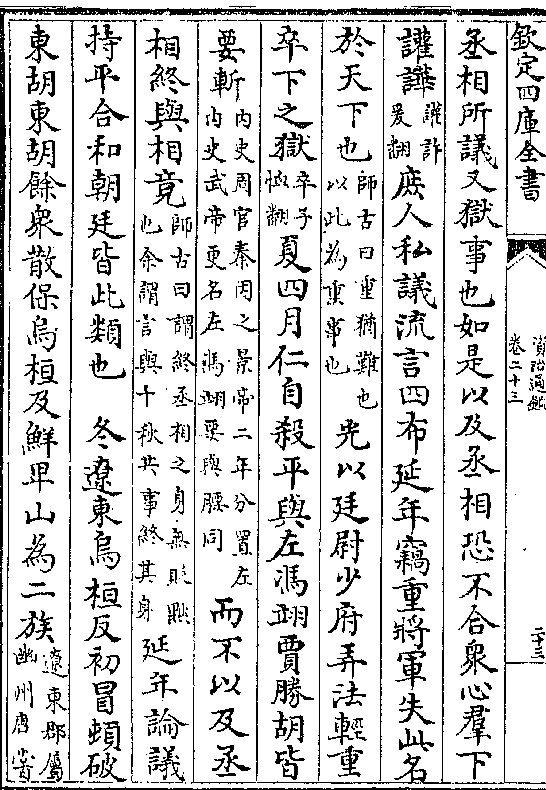 欽定四庫全書
資治通鑑
卷二十三
二十三
丞相所議又獄事也如是以及丞相恐不合衆心羣下
讙譁讙許爰翻庶人私議流言四布延年竊重將軍失此名
於天下也師古曰重猶難也以此為重事也光以廷尉少府弄法輕重
卒下之獄卒子恤翻夏四月仁自殺平與左馮翊賈勝胡皆
要斬內史周官秦因之景帝二年分置左內史武帝更名左馮翊要與腰同而不以及丞
相終與相竟師古曰謂終丞相之身無貶黜也余謂言與千秋共事終其身延年論議
持平合和朝廷皆此類也　冬遼東烏桓反初冒頓破
東胡東胡餘衆散保烏桓及鮮卑山為二族遼東郡屬幽州唐